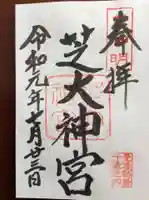 奉拝
芝大神宮
令和元年十月廿三日